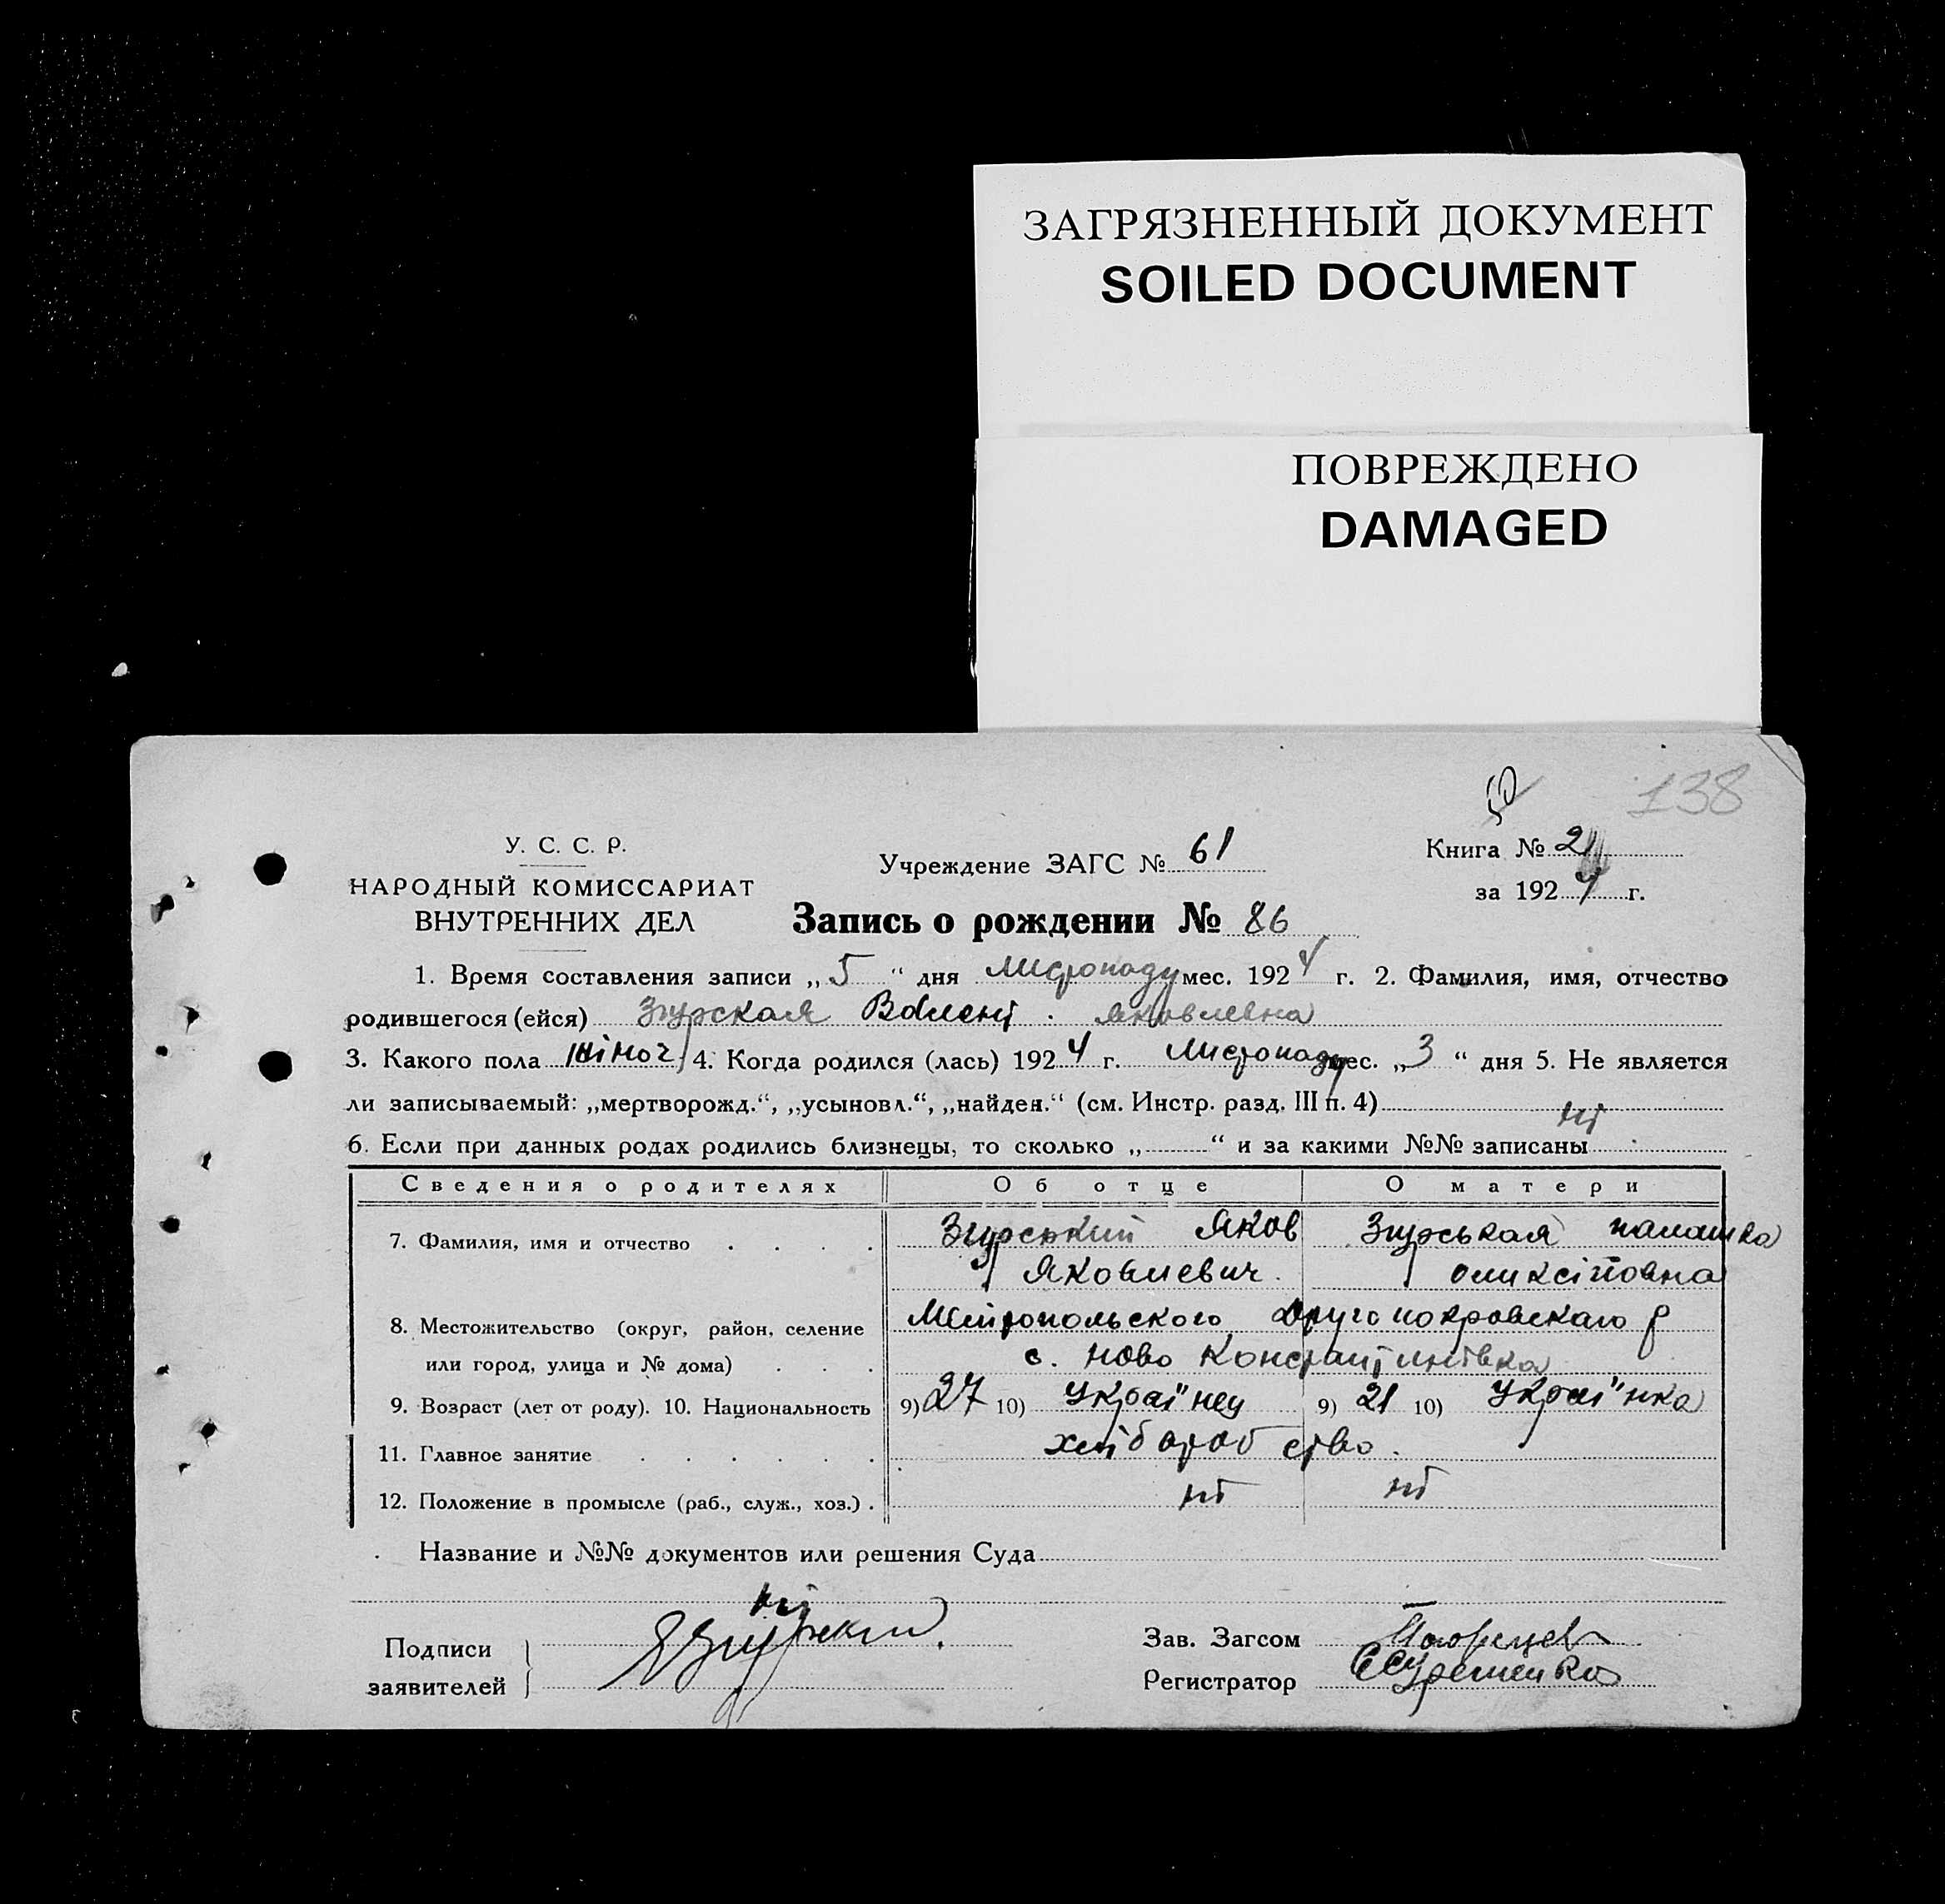 ЗАГРЯЗНЕННЫЙ ДОКУМЕНТ
SOILED DOCUMENT
ПОВРЕЖДЕНО
DAMAGED
138
У. С. С. Р.
НАРОДНЫЙ КОМИССАРИАТ
ВНУТРЕННИХ ДЕЛ
Учреждение ЗАГС № 61
Книга № 2
за 1924 г.
Запись о рождении № 86
1. Время составления записи „5“ дня Листопаду мес. 1924 г. 2. Фамилия, имя, отчество
родившегося (ейся) Згурская Яковлевна
3. Какого пола жіноч 4. Когда родился (лась) 1924 г. Листопаду мес. „3“ дня 5. Не является
ли записываемый: „мертворожд.“, „усыновл.“, „найден.“ (см. Инстр. разд. III п. 4)
6. Если при данных родах родились близнецы, то сколько „ “ и за какими №№ записаны ні
Сведения о родителях Об отце О матери
7. Фамилия, имя и отчество Згурський Яков Згурськая палашка
Яковлевич
8. Местожительство (округ, район, селение Покровскаго р
или город, улица и № дома) с. Ново Константинівка
9. Возраст (лет от роду). 10. Национальность 9) 27 10) Украї"нец 9) 21 10) Украї"нка
11. Главное занятие хліборобство.
12. Положение в промысле (раб., служ., хоз.) ні ні
Название и №№ документов или решения Суда
ні
Подписи
заявителей
Зав. Загсом
Регистратор